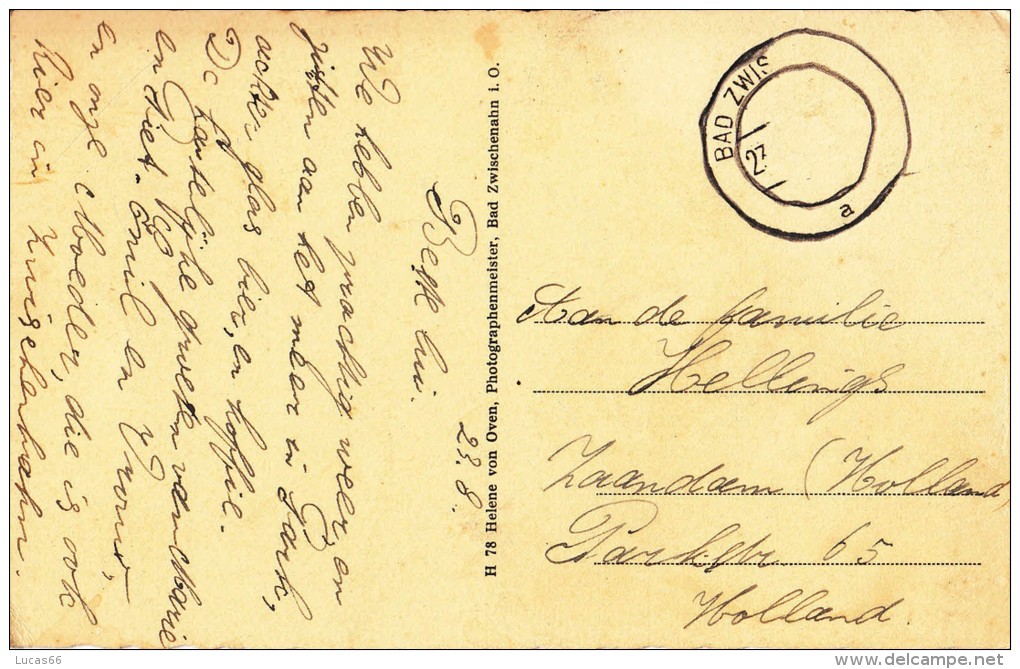 23. 8.
Beste lui.
We hebben prachtig weer, en
zitten aan het meer in Park,
achter glas bier, en koffie.
De hartelijke groeten van Marie
en Piet. Emil en
en onze Moeder, die is ook
hier in Zwischenahn.
H 78 Helene von Oven, Photographenmeister, Bad Zwischenahn i. O.
BAD ZWIS
27
a
Aan de familie
Hellings
Zaandam (Holland
Parkstr. 65
Holland.
Lucas66
www.delcampe.net